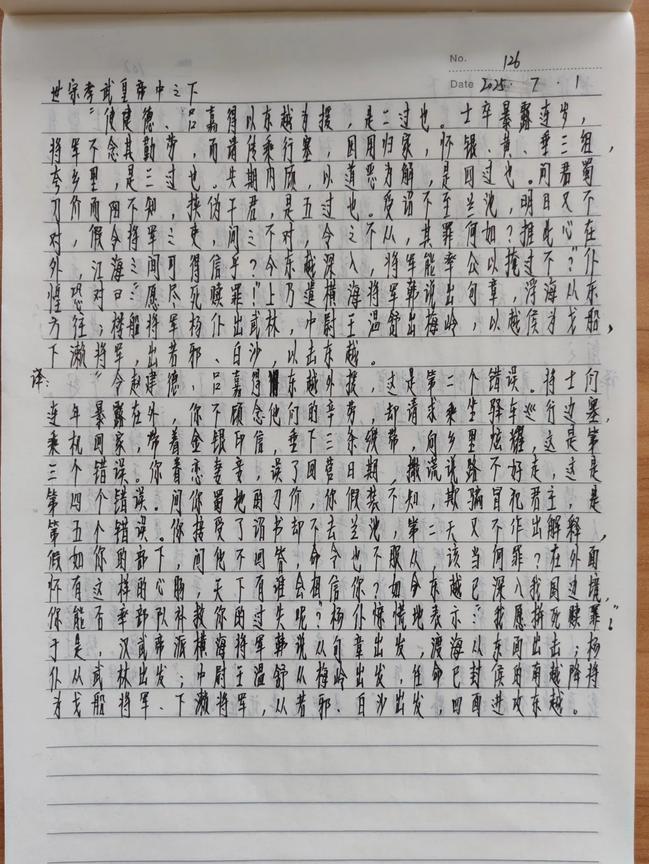 No. 126
Date 2025 · 7 · 1
世宗孝武皇帝中之下
“使建德、吕嘉得以东越为援，是二过也。士卒暴露连岁，
将军不念其勤劳，而请传乘行塞，因用归家，怀银、黄、垂三组，
夸乡里，是三过也。失期内顾，以道恶为解，是四过也。问君蜀
刀价而阳不知，挟伪干君，是五过也。受诏不至兰池，明日又不
对，假令将军之吏，问之不对，令之不从，其罪何如？推此心在
外，江海之间可得信乎？今东越深入，将军能率众以掩过不？”仆
惶恐对曰：“愿尽死赎罪！”上乃遣横海将军韩说出句章，浮海从东
方往；楼船将军杨仆出武林，中尉王温舒出梅岭，以越侯为戈船，
下濑将军，出若邪、白沙，以击东越。
译：“令赵建德、吕嘉得东越外援，这是第二个错误。将士们
连年暴露在外，你不顾念他们的辛劳，却请求乘坐驿车巡行边塞，
乘机回家，带着金银印信，垂下三条绶带，向乡里炫耀，这是第
三个错误。你眷恋妻妾，误了回营日期，撒谎说路不好走，这是
第四个错误。问你蜀地的刀价，你假装不知，欺骗冒犯君主，是
第五个错误。你接受了诏书却不去兰池，第二天又不作出解释，
假如你的部下，问他不回答，命令也不服从，该当何罪？在外面
怀有这样的心肠，天下有谁会相信你？如今东越已深入我国边境，
你能否率部队补救你的过失呢？”杨仆惊慌地表示：“我愿拼死赎罪！”
于是，汉武帝派横海将军韩说从句章出发，渡海从东面出击；杨
仆从武林出发；中尉王温舒从梅岭出发，任命已封侯的南越降将
为戈船将军、下濑将军，从若邪、白沙出发，四面进攻东越。